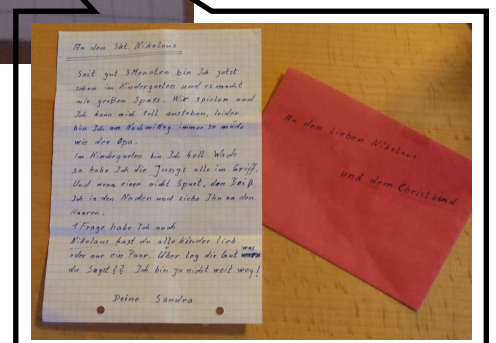 An den Skt. Nikolaus
Seit gut 3 Monaten bin Ich jetzt
schon im Kindergarten und es macht
mir großen Spass. Wir spielen und
Ich kann mich toll austoben, leider
bin Ich am Nachmittag immer so müde
wie der Opa.
Im Kindergarten bin Ich
so habe Ich die Jungs alle im Griff.
Und wenn einer nicht Spurt, den Beiß
Ich in den Nacken und ziehe Ihn an den
Haaren.
1. Frage habe Ich noch
Nikolaus hast du alle Kinder lieb
oder nur ein Paar. Über leg dir Gut was
du Sagst?? Ich bin ja nicht weit weg!
Deine Sandra
An den lieben Nikolaus
und dem Christkind